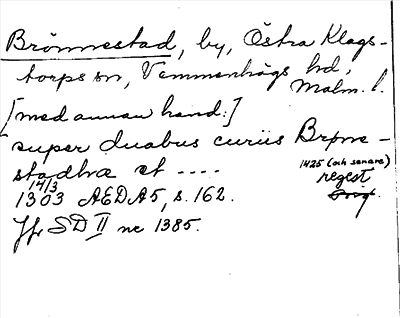 Brönnestad, by, Östra Klags-
torps sn, Vemmenhögs hd,
Malm. l.
[med annan hand:]
super duabus curiis Brøne-
stadhæ et ----
1425 (och senare)
regest
14/3
1303 AEDA5, s. 162.
Jfr SD II nr 1385.